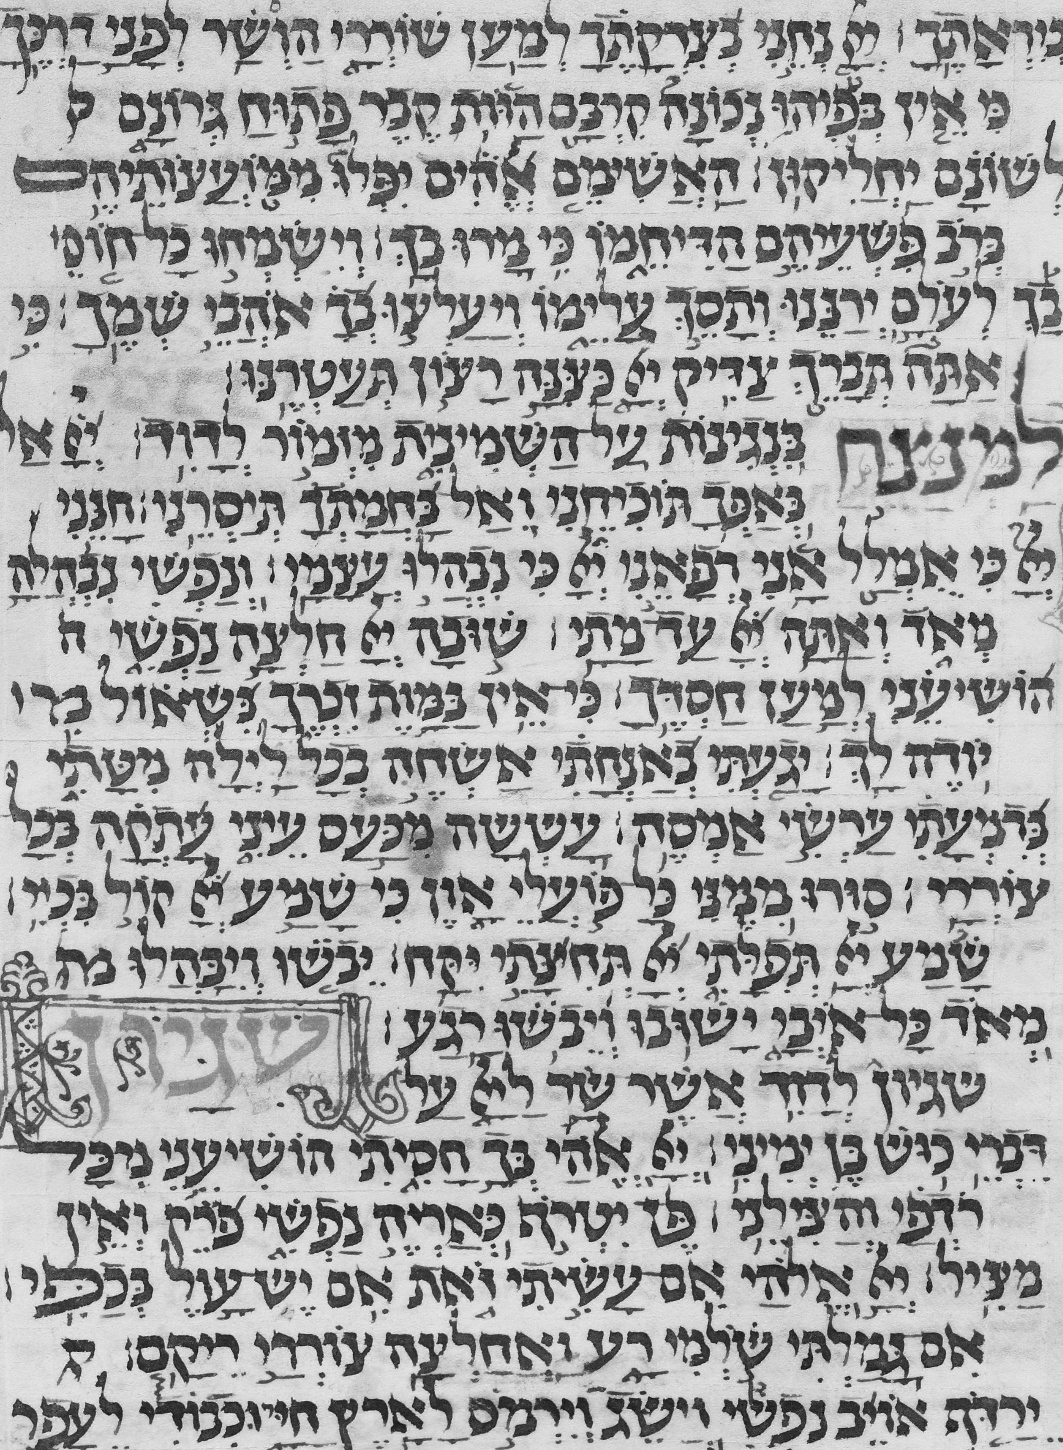 ביראתך : יי נחני בצדקתך למען שוררי הושר לפני דרכך
כי אין בפיהו נכונה קרבם הוות קבר פתוח גרונם ל
לשונם יחליקון : האשימם אלהים יפלו ממועצותיהם
ברב פשעיהם הדיחמו כי מרו בך : וישמחו כל חוסי
בך לעולם ירננו ותסך עלימו ויעלצו בך אהבי שמך : כי
אתה תברך צדיק יי כצנה רצון תעטרנו :
למנצח בנגינות על השמינית מזמור לדוד : יי אל
באפך תוכיחני ואל בחמתך תיסרני : חנני
יי כי אמלל אני רפאני יי כי נבהלו עצמי : ונפשי נבהלה
מאד ואתה יי עד מתי : שובה יי חלצה נפשי ה
הושיעני למען חסדך : כי אין במות זכרך בשאול מי
יודה לך : יגעתי באנחתי אשחה בכל לילה מטתי
בדמעתי ערשי אמסה : עששה מכעס עיני עתקה בכל
צוררי : סורו ממני כל פועלי און כי שמע יי קול בכיי :
שמע יי תפלתי יי תחינתי יקח : יבשו ויבהלו מא
מאד כל איבי ישובו ויבשו רגע :
שגיון
שגיון לדוד אשר שר ליי על
דברי כוש בן ימיני : יי אלהי בך חסיתי הושיעני מכל
רדפי והצילני : פן יטרף כאריה נפשי פרק ואין
מציל : יי אלהי אם עשיתי זאת אם יש עול בכפי :
אם גמלתי שולמי רע ואחלצה צוררי ריקם :
ירדף אויב נפשי וישג וירמס לארץ חיי וכבודי לעפר